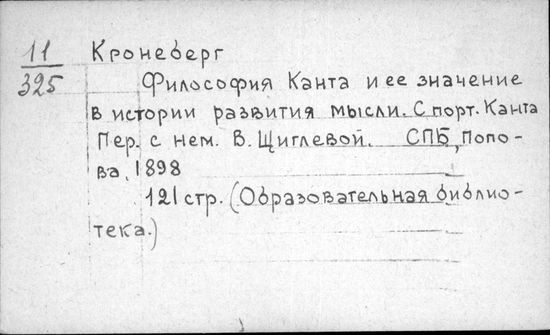 11
325
Кронеберг
Философия Канта и ее значение
в истории развития мысли. С порт. Канта
Пер. с нем. В. Щиглевой. СПБ, Попо-
ва, 1898
121 стр. (Образовательная библио-
тека.)